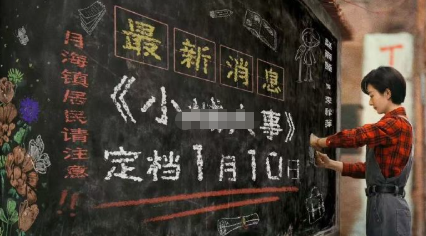 最新消息
《小 事》
定档1月10日
月海镇居民请注意!!